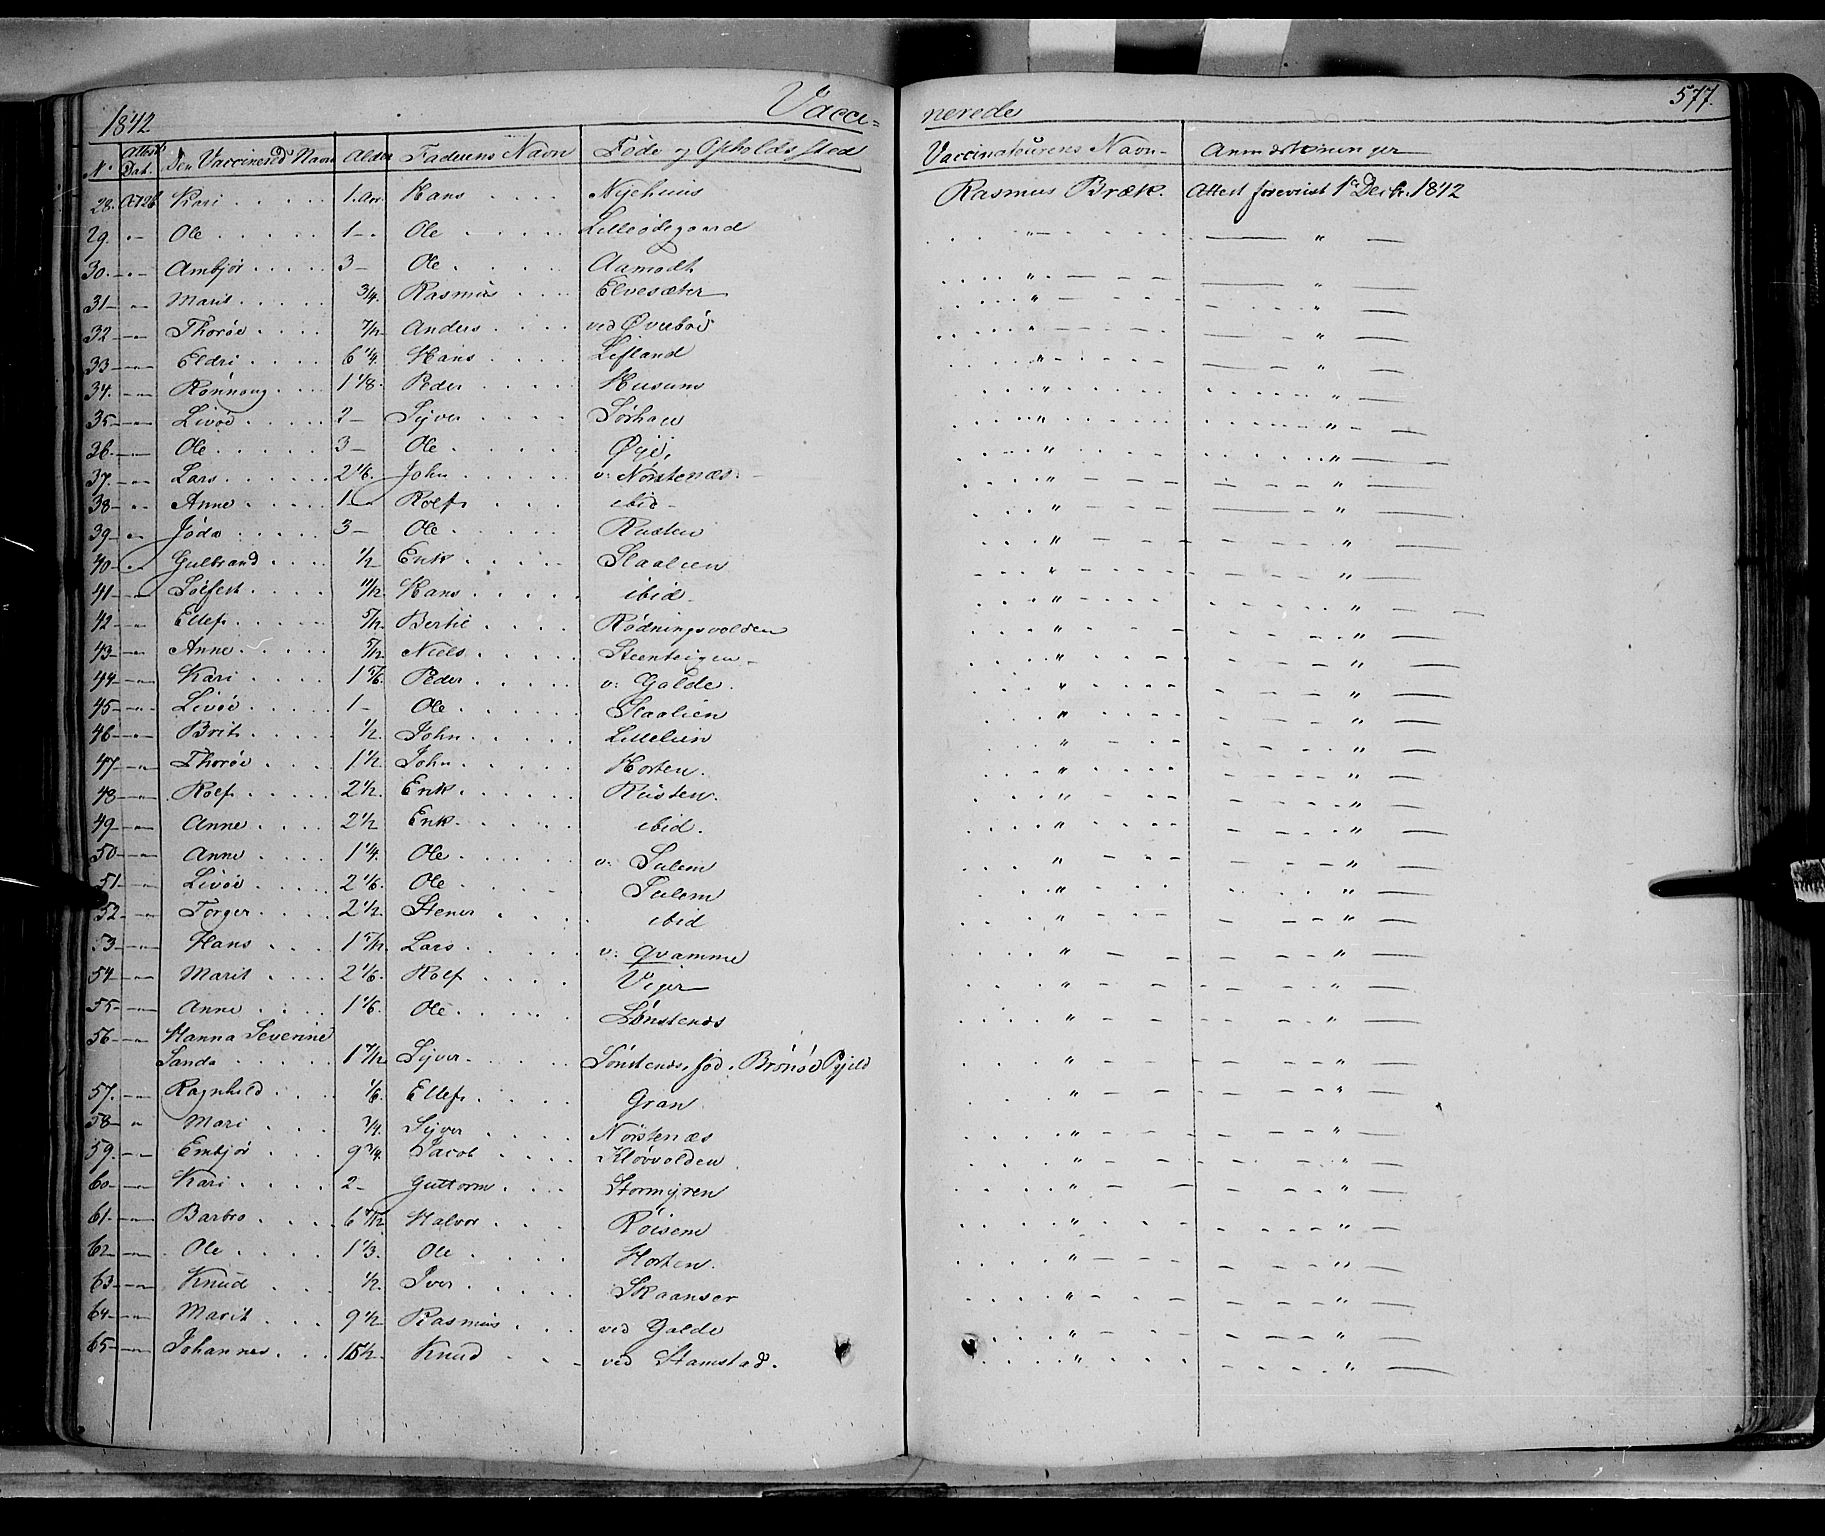 1842 Vacci= nerede 577.
No Attest Dat. Den Vaccinered Navn Alder Faderens Navn Føde og Opholds sted Vaccinateurens Navn Anmærkninger
28. Oct 26 Kari . . . . 1. Aar Hans . . . Nyehuus Rasmus Bræk. Attest foreviist 1e Decbr. 1842
29. " Ole . . . . 1 - Ole . . . . Lilleødegaard " "
30. " Ambjør . . . . 3 - Ole . . . . Aamodt " "
31 " Marit . . . . 3/4. Rasmus . . . Elvesæter " "
32 " Thorøe . . . . 7/12 Anders . . . . ved Øvrebøe " "
33 " Eldri . . . . 6 1/4. Hans . . . . Lifland " "
34. " Rønnoug . . . 1 1/8. Peder . . . . Husum " "
35 " Livøe . . . . 2 - Syver . . . . Sørhau " "
36. " Ole . . . . 3 - Ole . . . . Øye, " "
37. " Lars . . . . 2 1/6. John . . . . v: Nørstenæs. " "
38 " Anne . . . . 1 - Rolf . . . . ibid " "
39. " Jøda . . . . 3 - Ole . . . . Rusten " "
40 " Gulbrand . . . . 1/2 Erik . . . . Slaalien " "
41 " Sølfest . . . . 11/12 Hans . . . . ibid " "
42 " Ellef . . . . 5/12 Bertil . . . . Rødningsvolden " "
43 " Anne . . . . 7/12. Niels . . . . Steenteigen " "
44 " Kari . . . . 1 5/6. Peder . . . . v: Galde. " "
45 " Livøe . . . . 1 - Ole . . . . Slaalien " "
46 " Brit . . . . 1/2. John . . . . Lillelien " "
47 " Thorøe . . . . 1 1/2 John . . . . Horten. " "
48 " Rolf . . . . 2 1/2. Erik . . . . Rusten. " "
49 " Anne . . . . 2 1/2 Erik . . . . ibid. " "
50 " Anne . . . . 1 1/4. Ole . . . . v: Sulem " "
51 " Livøe . . . . 2 1/6. Ole . . . . Sulem " "
52 " Torger . . . . 2 1/2. Stener . . . . ibid " "
53 " Hans . . . . 1 7/12. Lars . . . . v: Qvamme " "
54 " Marit . . . . 2 1/6. Rolf . . . . Viger " "
55 " Anne . . . . 1 1/6. Ole . . . . Sønstenæs " "
56 " Hanna Severine
Sanda . . . . 1 7/12 Syver . . . . Sønstenæs, fød i Brønøe Pgjeld " "
57. " Ragnhild . . . . 1/6. Ellef . . . . Gran " "
58 " Mari . . . . 3/4. Syver . . . . Nørstenæs " "
59. " Embjør . . . 9 3/4. Jacob . . . . Kløvvolden " "
60 " Kari . . . . 2 - Guttorm . . . . Stormyren " "
61. " Barbro . . . . 6 7/12 Halvor . . . . Røisem " "
62 " Ole . . . . 1 1/3. Ole . . . . Horten. " "
63 " Knud . . . . 1/2. Iver . . . . Skaanser " "
64 " Marit . . . . 9 1/2 Rasmus . . . ved Galde " "
65 " Johannes . . . 15 1/2. Knud . . . ved Stamstad. " "